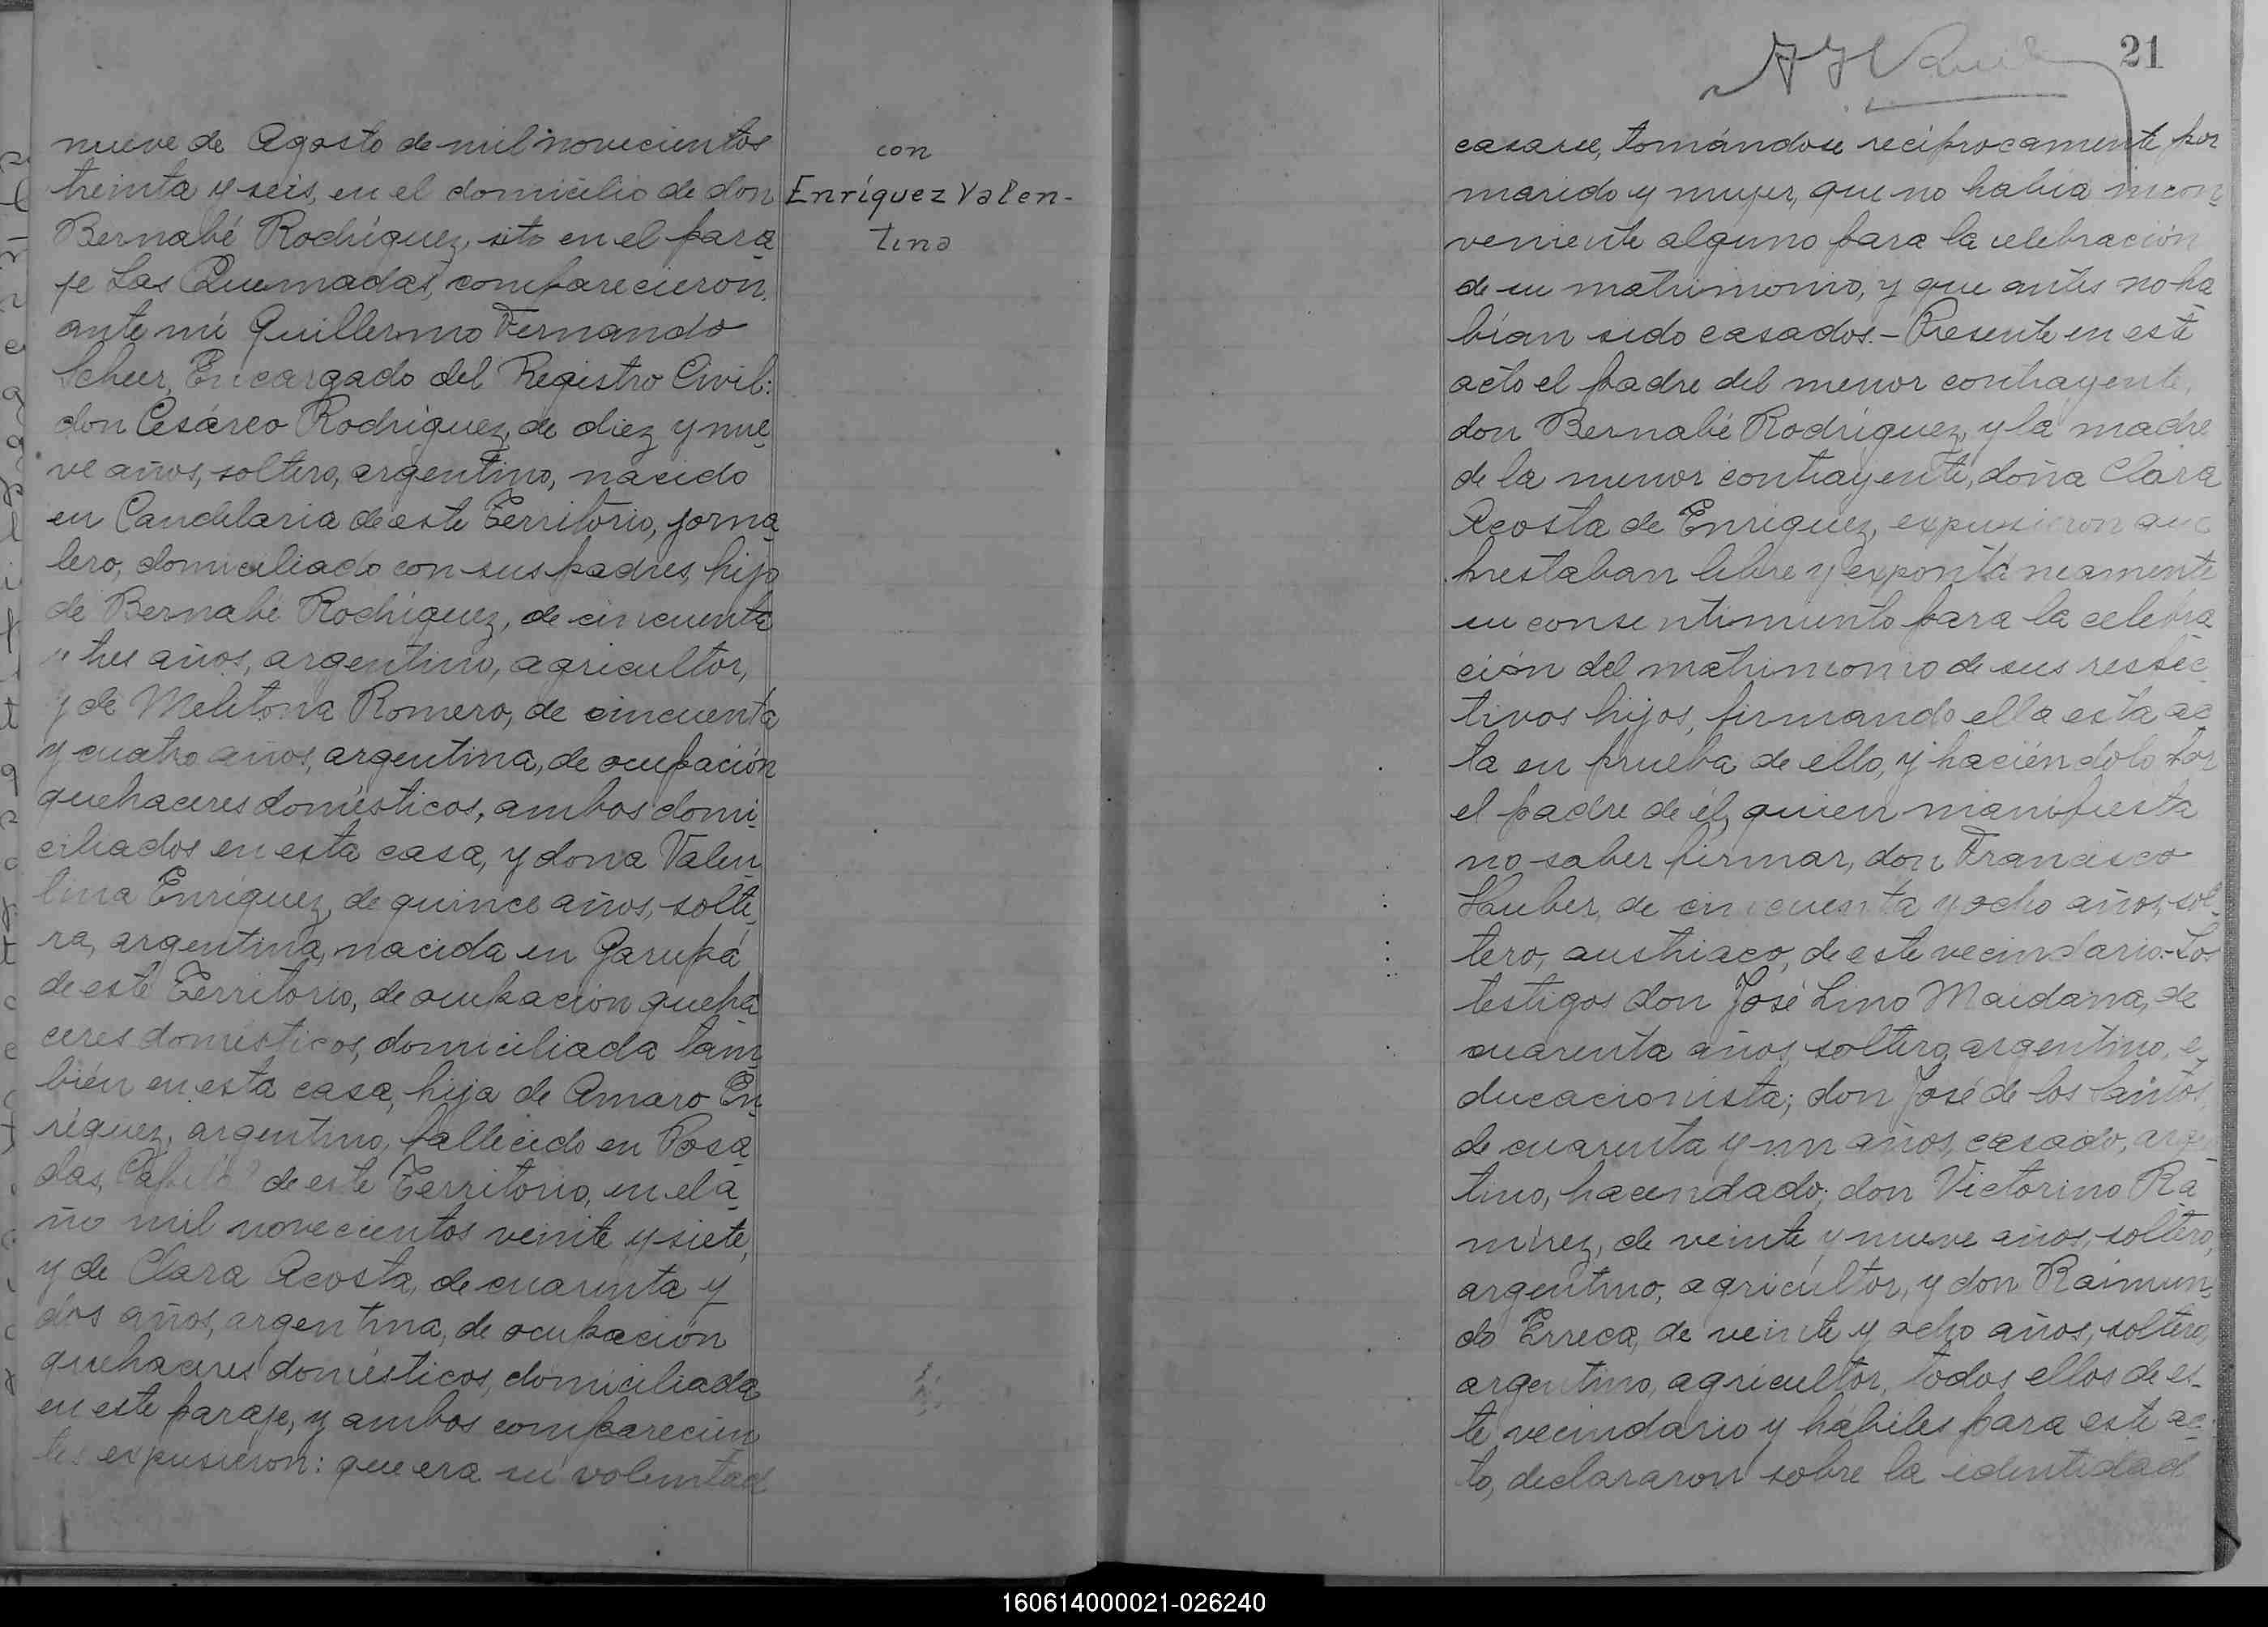 nueve de Agosto de mil novecientos
treinta y seis, en el domicilio de don
Bernabé Rodríguez, sito en el para
je Las Quemadas, comparecieron
ante mí Guillermo Fernando
Scheer, Encargado del Registro Civil:
don Cesáreo Rodríguez, de diez y nue
ve años, soltero, argentino, nacido
en Candelaria de este Territorio, jorna
lero, domiciliado con sus padres, hijo
de Bernabé Rodríguez, de cincuenta
y tres años, argentino, agricultor,
y de Melitona Romero, de cincuenta
y cuatro años, argentina, de ocupación
quehaceres domésticos, ambos domi
ciliados en esta casa, y dona Valen
tina Enríquez, de quince años, solte
ra, argentina, nacida en Garupá
de este Territorio, de ocupación queha
ceres domésticos, domiciliada tam
bién en esta casa, hija de Amaro En
ríquez, argentino, fallecido en Posa
das, Capital de este Territorio, en el a
ño mil novecientos veinte y siete,
y de Clara Acosta, de cuarenta y
dos años, argentina, de ocupación
quehaceres domésticos, domiciliada
en este paraje, y ambos comparecien
tes expusieron: que era su voluntad
con
Enríquez Valen-
tina
21
casarse, tomándose recíprocamente por
marido y mujer, que no había incon
veniente alguno para la celebración
de su matrimonio, y que antes no ha
bían sido casados.- Presente en este
acto el padre del menor contrayente,
don Bernabé Rodríguez, y la madre
de la menor contrayente, doña Clara
Acosta de Enríquez, expusieron que
prestaban libre y expontáneamente
su consentimiento para la celebra
ción del matrimonio de sus respec
tivos hijos, firmando ella esta ac
ta en prueba de ello, y haciéndolo por
el padre de él, quien manifiesta
no saber firmar, don Francisco
Hauber, de cincuenta y ocho años, sol
tero, austriaco, de este vecindario.- Los
testigos don José Lino Maidana, de
cuarenta años, soltero, argentino, e
ducacionista; don José de los Santos,
de cuarenta y un años, casado, argen
tino, hacendado; don Victorino Ra
mírez, de veinte y nueve años, soltero,
argentino, agricultor, y don Raimun
do Erreca, de veinte y ocho años, soltero,
argentino, agricultor, todos ellos de es-
te vecindario y hábiles para este ac
to, declararon sobre la identidad
160614000021-026240